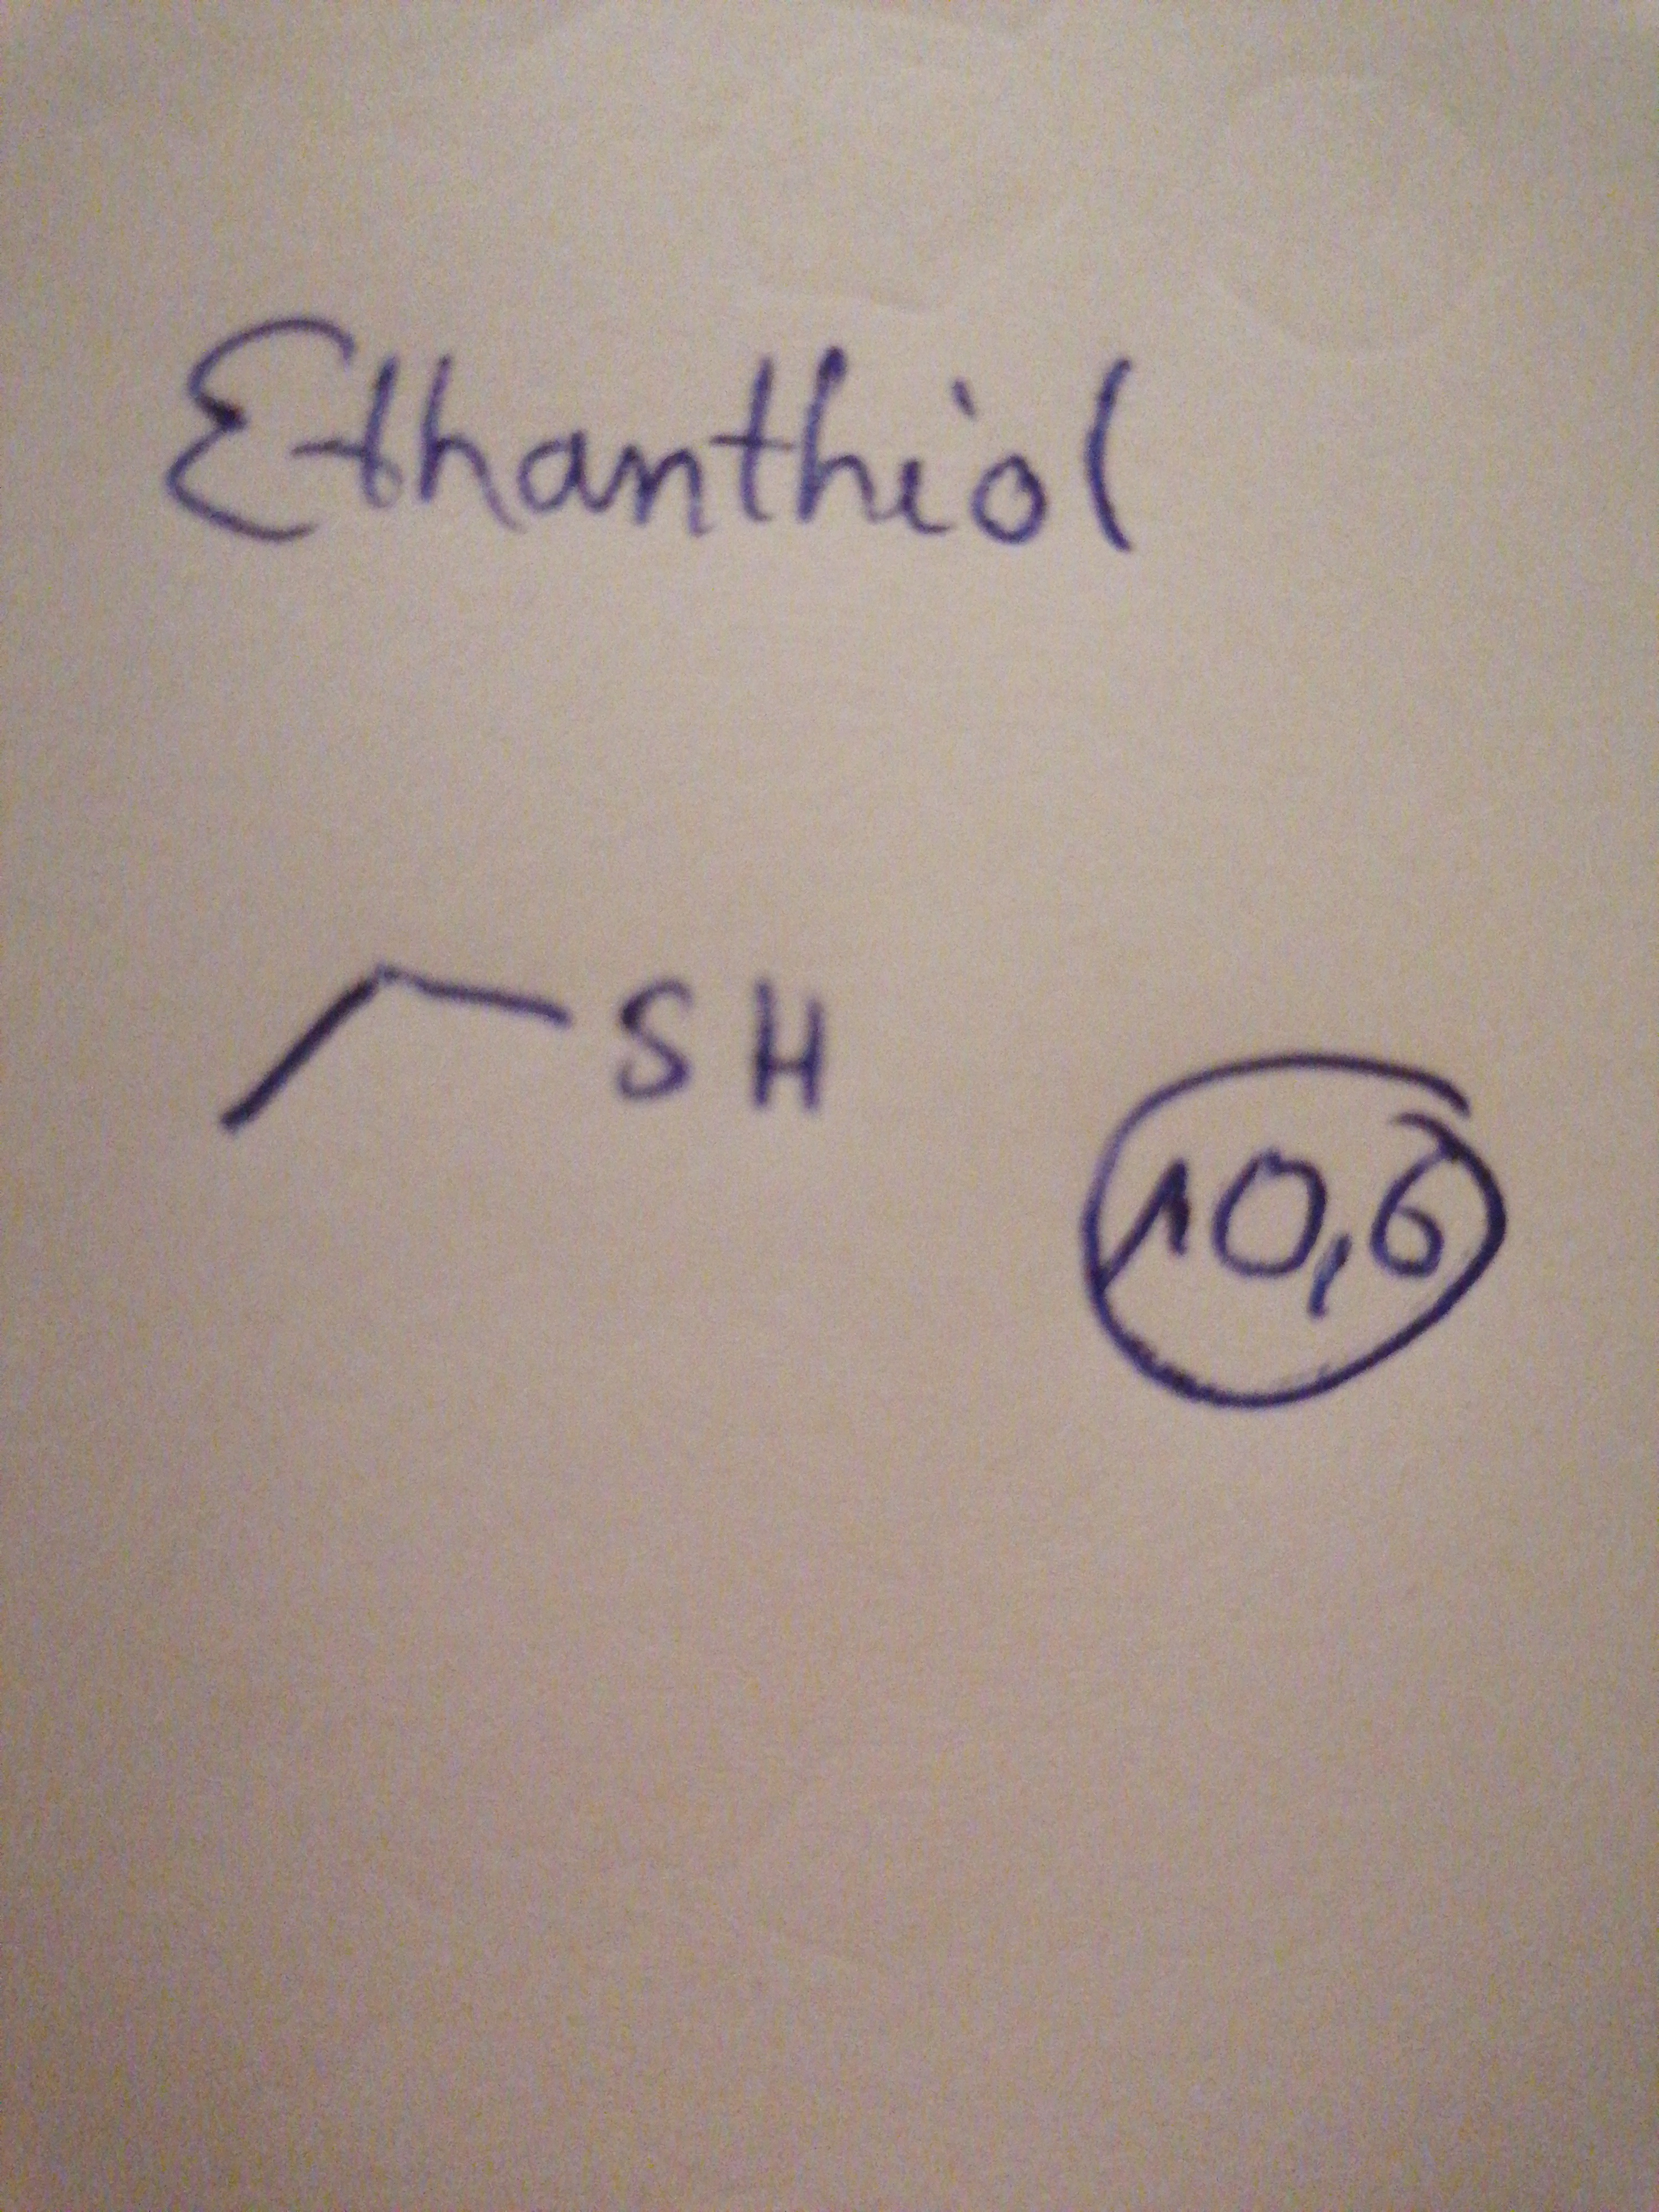 Ethanthiol
SH
10,6